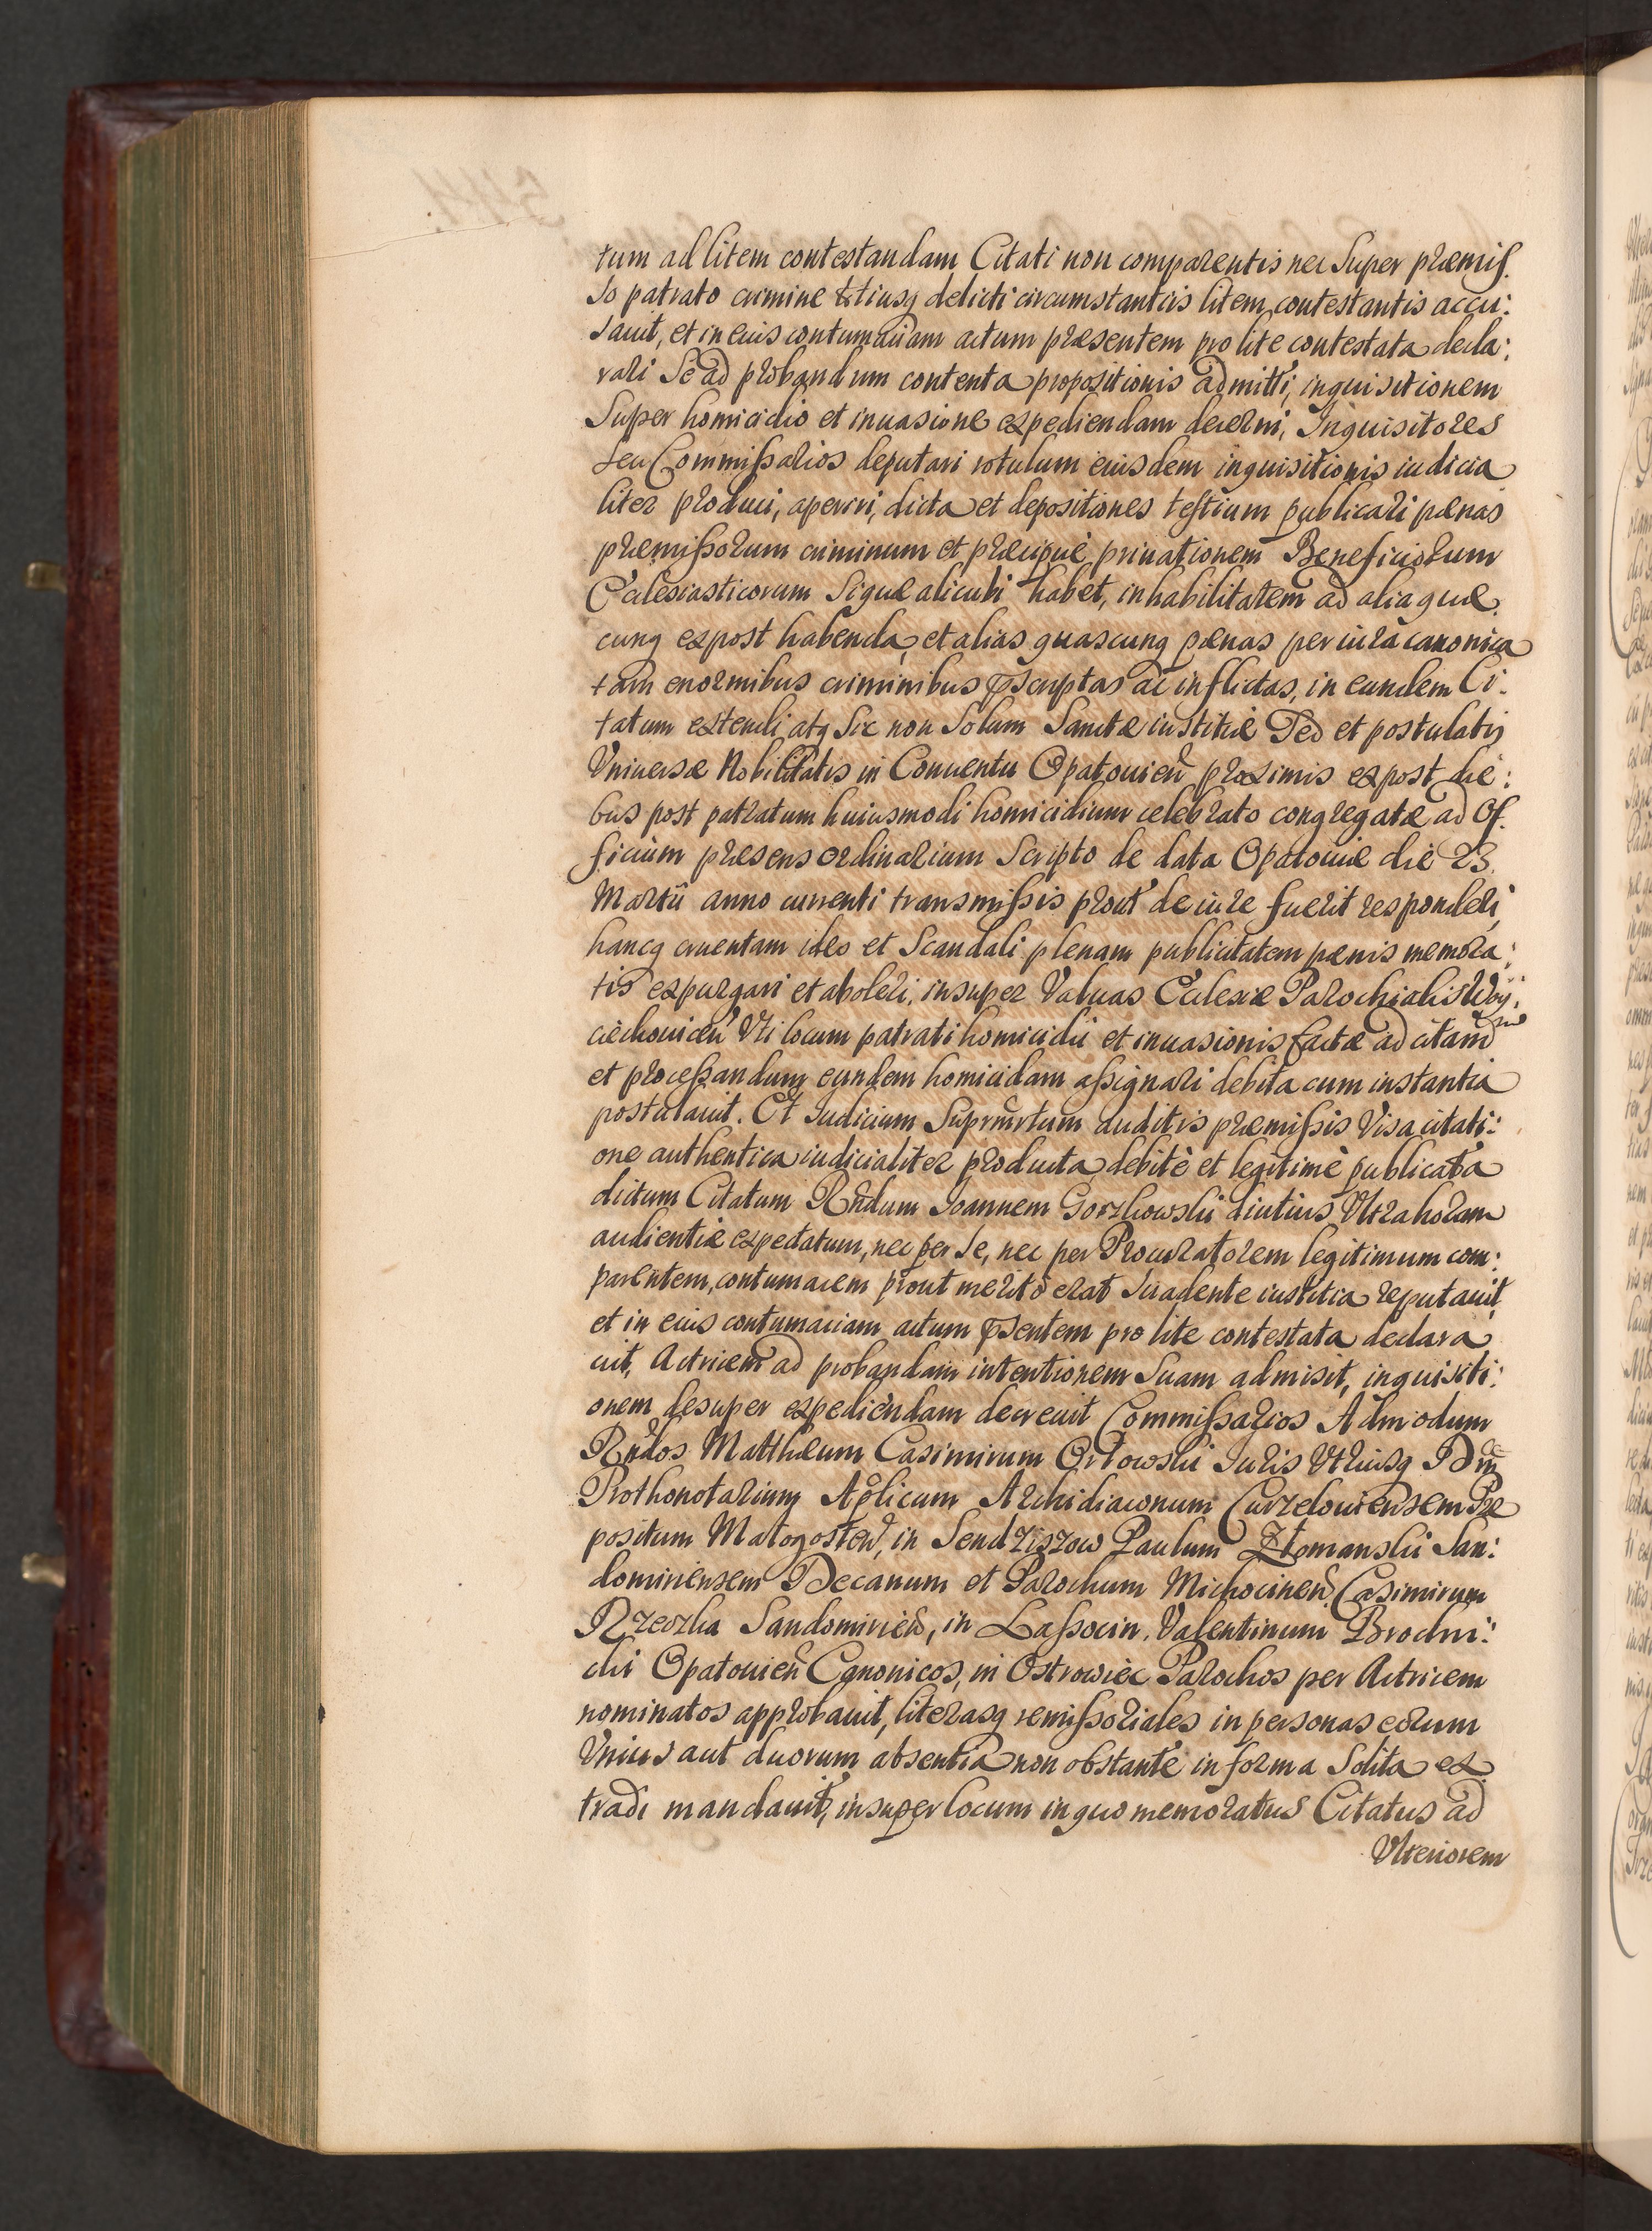 tum ad litem contestandam Citati non comparentis nec Super præmis.
so patrato crimine delicti circumstantiis litem contestantis accu:
sauit, et in eius contumaciam actum præsentem pro lite contestata decla:
rari Se ad probandum contenta propositionis admitti, inquisitionem
Super homicidio et inuasione expediendam decerni, Inquisitores
seu Commissarios deputari rotulum eiusdem inquisitionis iudicia
liter produci, aperiri, dicta et depositiones testium publicari pænas
præmissorum criminum et præcipuè priuationem Beneficiorum
Ecclesiasticorum Siquæ alicubi habet, inhabilitatem ad alia quæ
cunq expost habenda, et alias quascunq pænas per iura canonica
tam enormibus criminibus pscriptas ac inflictas, in eundem Ci:
tatum extendi atq Sic non Solum Sanctæ iustitiæ Sed et postulatis
Vniuersæ Nobilitatis in Conuentu Opatouien proximis expost die:
bus post patratum huiusmodi homicidium celebrato congregatæ ad Of.
ficium præsens ordinarium Scripto de data Opatouiæ die 23
Martii anno currenti transmissis prout de iure fuerit responderi,
hancq cruentam ideo et Scandali plenam publicitatem pænis memora:
tis expurgari et aboleri, insuper Valuas Ecclesiæ Parochialis Woy:
ciechouicen Vti locum patrati homicidii et inuasionis factæ ad citand
et processandum eundem homicidam assignari debita cum instantia
postulauit. Et Iudicium auditis præmissis Visa citati:
one authentica iudicialiter producta debitè et legitimè publicata
dictum Citatum Rndum Ioannem Gorzkowski diutius Vltra horam
audientiæ expectatum, nec per Se, nec per Procuratorem legitimum com:
parentem, contumacem prout merito erat Suadente iustitia reputauit
et in eius contumaciam actum psentem pro lite contestata declara
uit, Actricem ad probandam intentionem Suam admisit, inquisiti:
onem desuper expediendam decreuit Commissarios Admodum
Rndos Matthæum Casimirum Orłowski Iuris Vtriusq
Prothonotarium Aplicum Archidiaconum Curzelouiensem Præ
positum Małogosten, in Sendziszow Paulum Złomanski San:
domiriensem Decanum et Parochum Michocinen, Casimirum
Rzeczka Sandomirien, in Lassocin, Valentinum Brodni:
cki Opatouien Canonicos, in Ostrowiec Parochos per Actricem
nominatos approbauit, literasq remissoriales in personas eorum
Vnius aut duorum absentia non obstante in forma Solita ex
tradi mandauit, insuper locum in quo memoratus Citatus ad
Vlteriorem